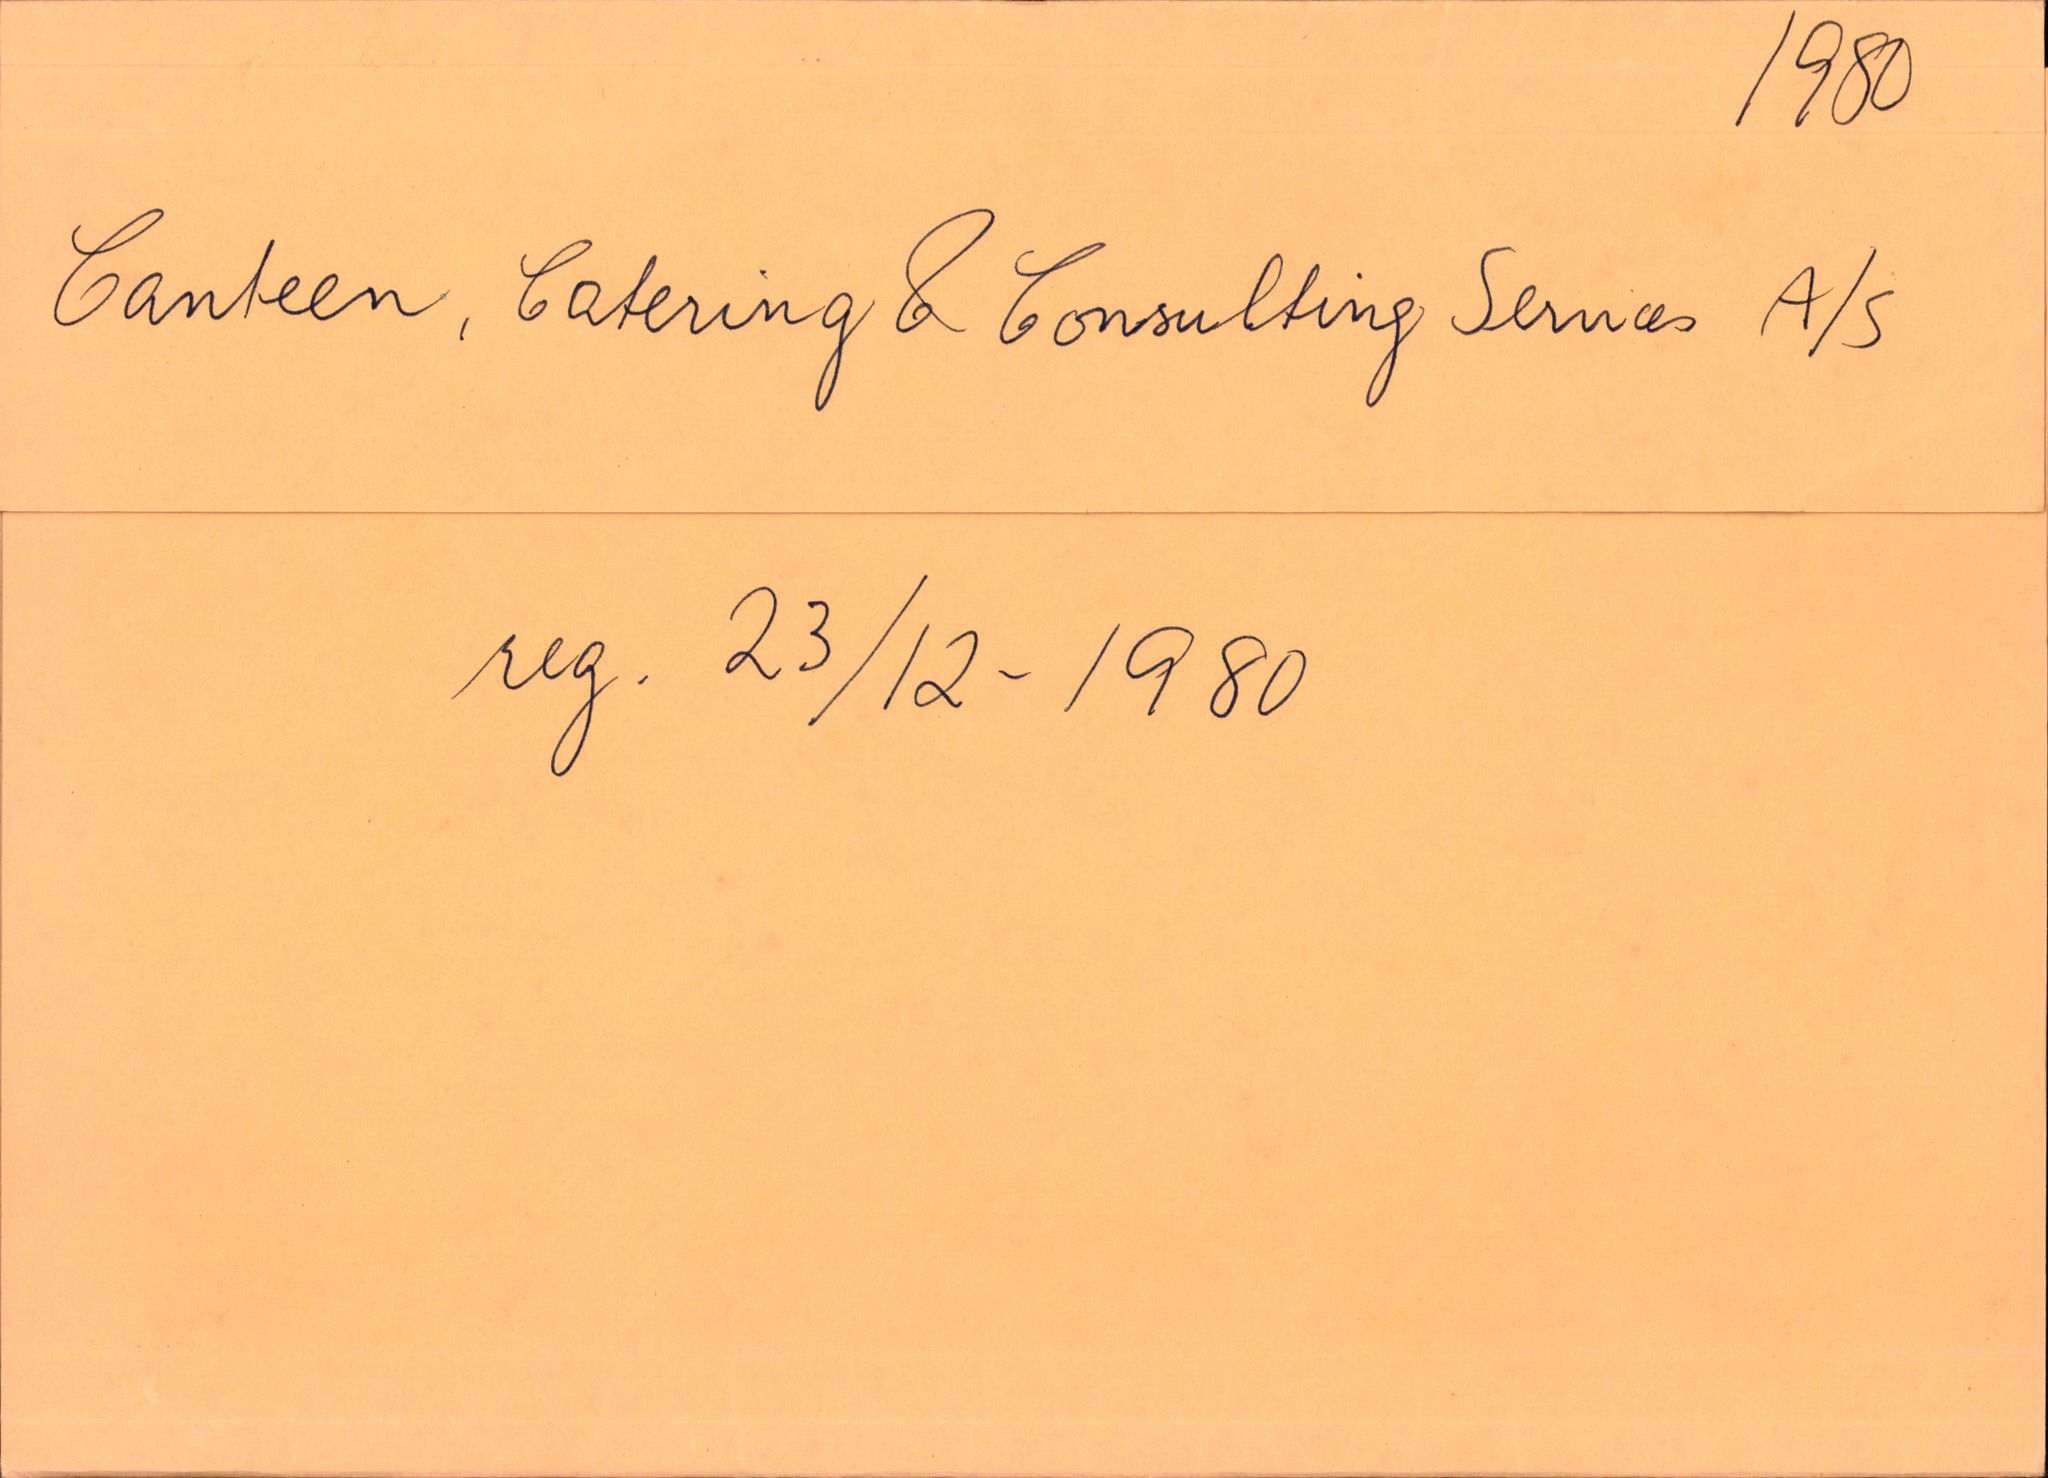 1980
Canteen, Catering & Consulting Services A/S
reg. 23/12-1980